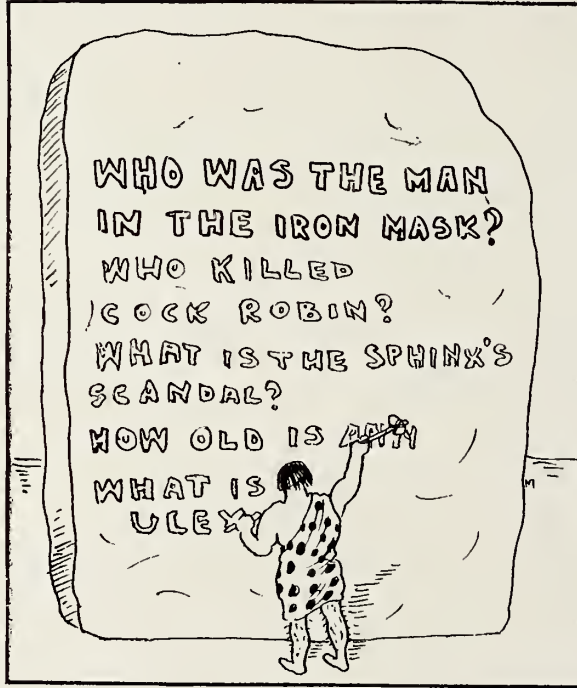 WHO WAS THE MAN
IN THE IRON MASK?
WHO KILLED
COCK ROBIN?
WHAT IS THE SPHINX'S
SCANDAL?
HOW OLD IS
WHAT IS
ULEX
M